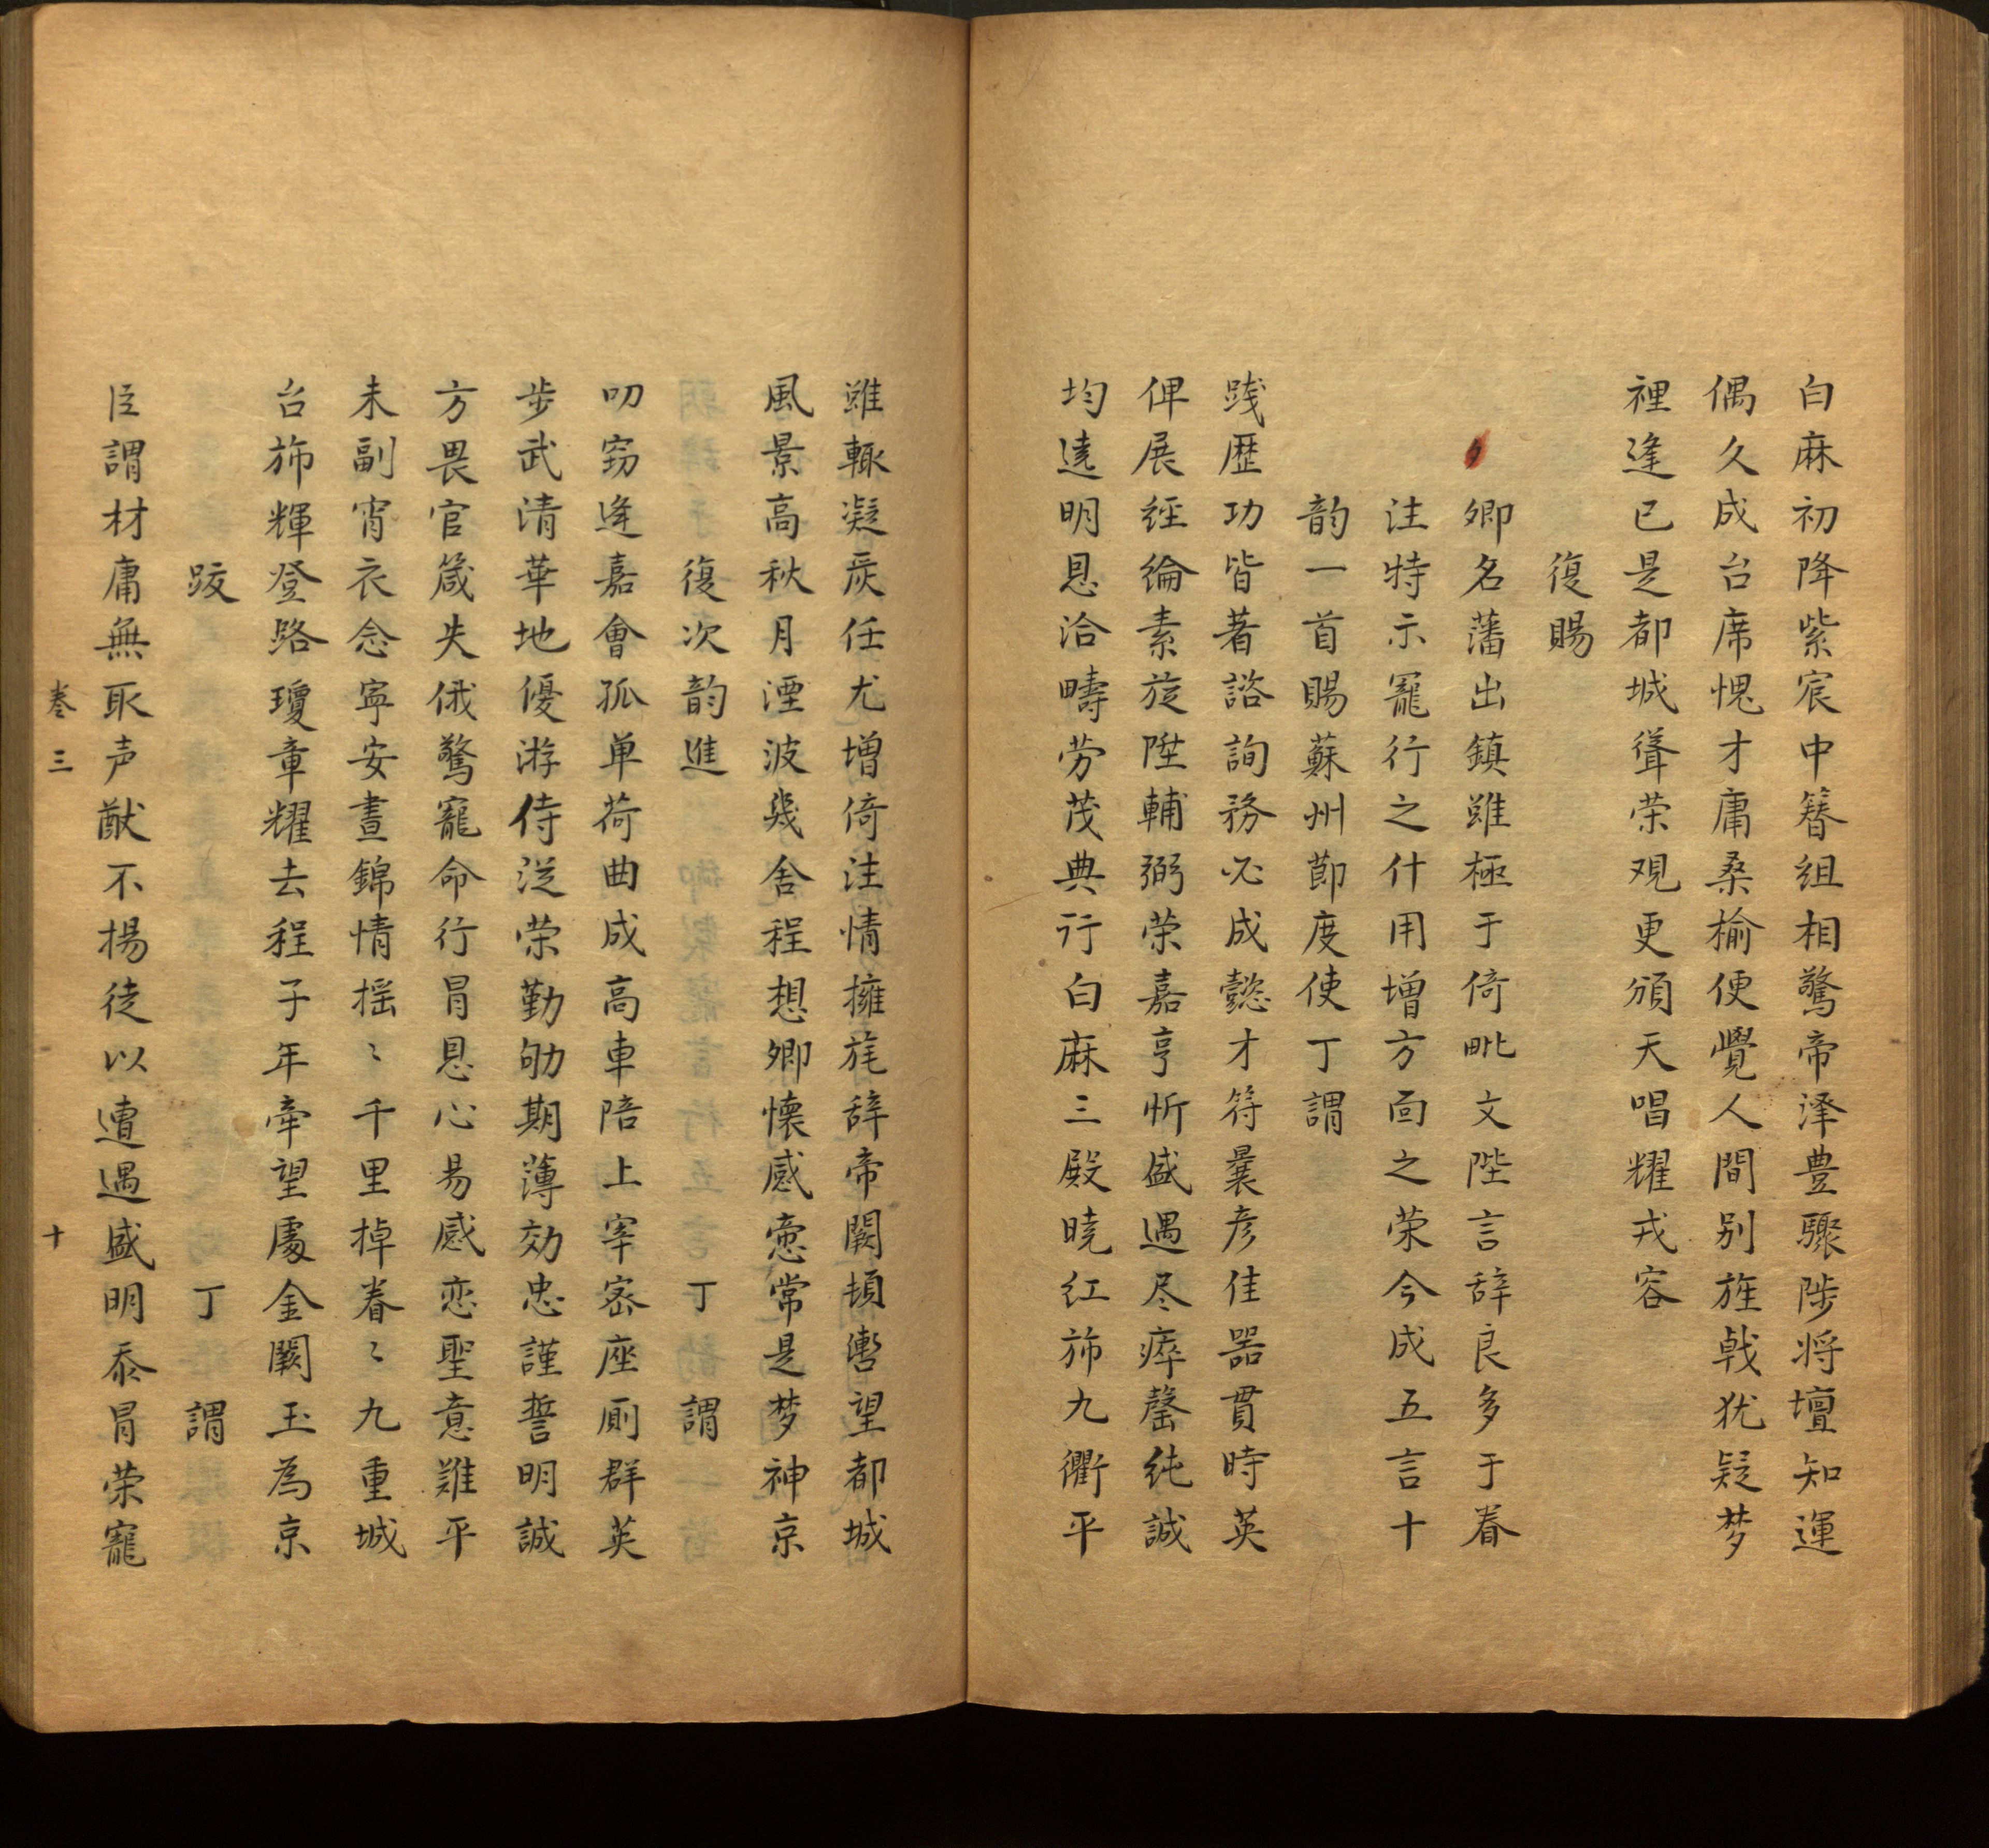 白麻初降紫宸中簪组相驚帝泽豊驟陟将壇知運
偶久成台席愧才庸桑榆便覺人間别旌戟犹疑梦
裡逢已是都城聳荣观更頒天唱耀戎容
復賜
夕
卿名藩出鎮雖極于倚毗文陛言辞良多于眷
注特示寵行之什用增方面之荣今成五言十
韵一首賜蘇州節度使丁謂
践歷功皆著諮詢務必成懿才符曩彦佳器貫時英
俾展經綸素旋陞輔弼荣嘉亨忻盛遇尽瘁罄純誠
均逺明恩洽疇劳茂典行白麻三殿曉红斾九衢平
雖輟凝泵任尤增倚注情擁旄辞帝闕頓轡望都城
風景高秋月湮波幾舍程想卿懷感戀常是梦神京
復次韵進 丁謂
叨窃逢嘉會孤单荷曲成高車陪上宰宻座厠群英
步武清華地優游侍從荣勤劬期薄効忠謹誓明誠
方畏官箴失俄驚寵命行冐恩心易感恋聖意難平
未副宵衣念寧安晝錦情揺〻千里掉眷〻九重城
台斾輝登路瓊章耀去程子年牵望處金闕玉為京
跋 丁謂
臣謂材庸無取声猷不揚徒以遭遇盛明忝冐荣寵
卷三 十